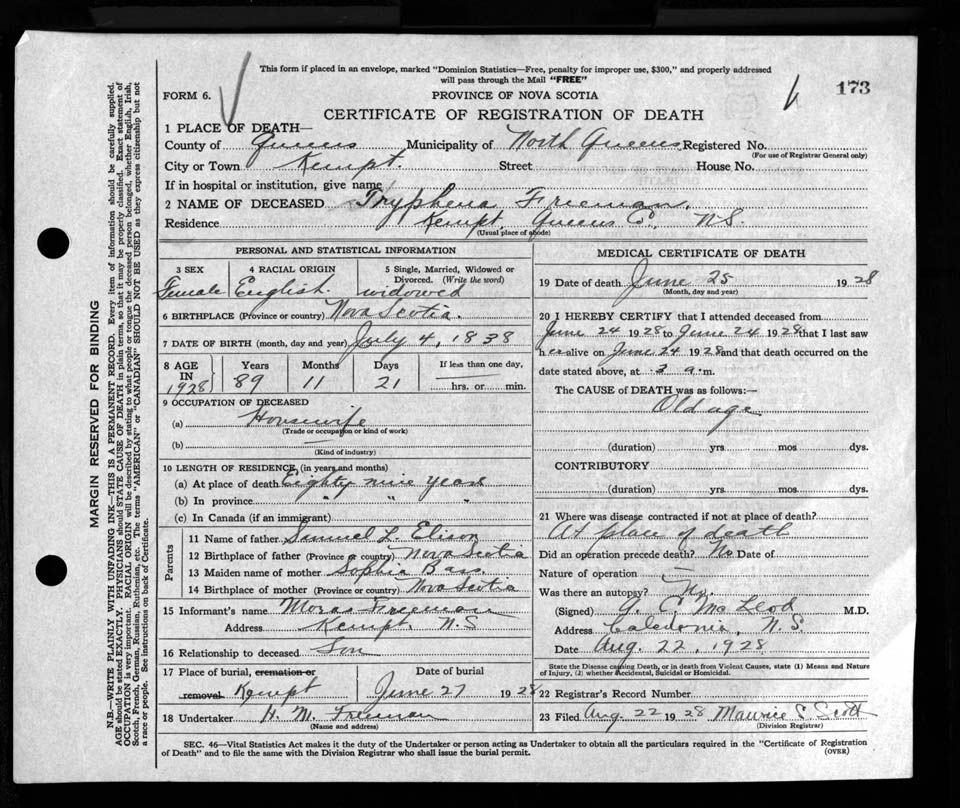 This form if placed in an envelope, marked "Dominion Statistics—Free, penalty for improper use, $300," and properly addressed
will pass through the Mail "FREE"
173
FORM 6.
PROVINCE OF NOVA SCOTIA
CERTIFICATE OF REGISTRATION OF DEATH
1 PLACE OF DEATH—
County of Queens Municipality of North Queens Registered No.
(For use of Registrar General only)
City or Town Kempt. Street House No.
If in hospital or institution, give name
2 NAME OF DECEASED Tryphena Freeman.
Residence Kempt, Queens Co., N.S.
(Usual place of abode)
PERSONAL AND STATISTICAL INFORMATION
3 SEX 4 RACIAL ORIGIN 5 Single, Married, Widowed or
Divorced. (Write the word)
Female English. widowed
6 BIRTHPLACE (Province or country) Nova Scotia.
7 DATE OF BIRTH (month, day and year) July 4, 1838
8 AGE IN 1928 Years 89 Months 11 Days 21 If less than one day,
hrs. or min.
9 OCCUPATION OF DECEASED
(a) Housewife
(Trade or occupation or kind of work)
(b)
(Kind of industry)
10 LENGTH OF RESIDENCE (in years and months)
(a) At place of death Eighty nine years
(b) In province " " "
(c) In Canada (if an immigrant)
Parents
11 Name of father Samuel L. Elison
12 Birthplace of father (Province or country) Nova Scotia
13 Maiden name of mother Sophia
14 Birthplace of mother (Province or country) Nova Scotia
15 Informant's name Freeman
Address Kempt, N.S
16 Relationship to deceased Son
17 Place of burial, cremation or
removal Kempt
Date of burial
June 27 1928
18 Undertaker H. M. Freeman
(Name and address)
MEDICAL CERTIFICATE OF DEATH
19 Date of death June 25 1928
(Month, day and year)
20 I HEREBY CERTIFY that I attended deceased from
June 24 1928 to June 24 1928 that I last saw
h er alive on June 24 1928 and that death occurred on the
date stated above, at 3 a.m.
The CAUSE of DEATH was as follows:—
Old age
(duration) yrs mos dys.
CONTRIBUTORY
(duration) yrs. mos. dys.
21 Where was disease contracted if not at place of death?
At place of death
Did an operation precede death? No Date of
Nature of operation —
Was there an autopsy? No.
(Signed) McLeod M.D.
Address Caledonia, N.S.
Date Aug. 22, 1928
State the Disease causing Death, or in death from Violent Causes, state (1) Means and Nature
of Injury, (2) whether Accidental, Suicidal or Homicidal.
22 Registrar's Record Number
23 Filed Aug 22 1928 Maurice S. Scott
(Division Registrar)
SEC. 46—Vital Statistics Act makes it the duty of the Undertaker or person acting as Undertaker to obtain all the particulars required in the "Certificate of Registration
of Death" and to file the same with the Division Registrar who shall issue the burial permit.
(OVER)
MARGIN RESERVED FOR BINDING
N.B.—WRITE PLAINLY WITH UNFADING INK—THIS IS A PERMANENT RECORD. Every item of information should be carefully supplied.
AGE should be stated EXACTLY. PHYSICIANS should STATE CAUSE OF DEATH in plain terms, so that it may be properly classified. Exact statement of
OCCUPATION is very important. RACIAL ORIGIN will be described by stating to what people or tongue the deceased person belonged, whether English, Irish,
Scotch, French, German, Russian, Ruthenian, etc. The terms "AMERICAN" or "CANADIAN" SHOULD NOT BE USED as they express citizenship but not
a race or people. See instructions on back of Certificate.